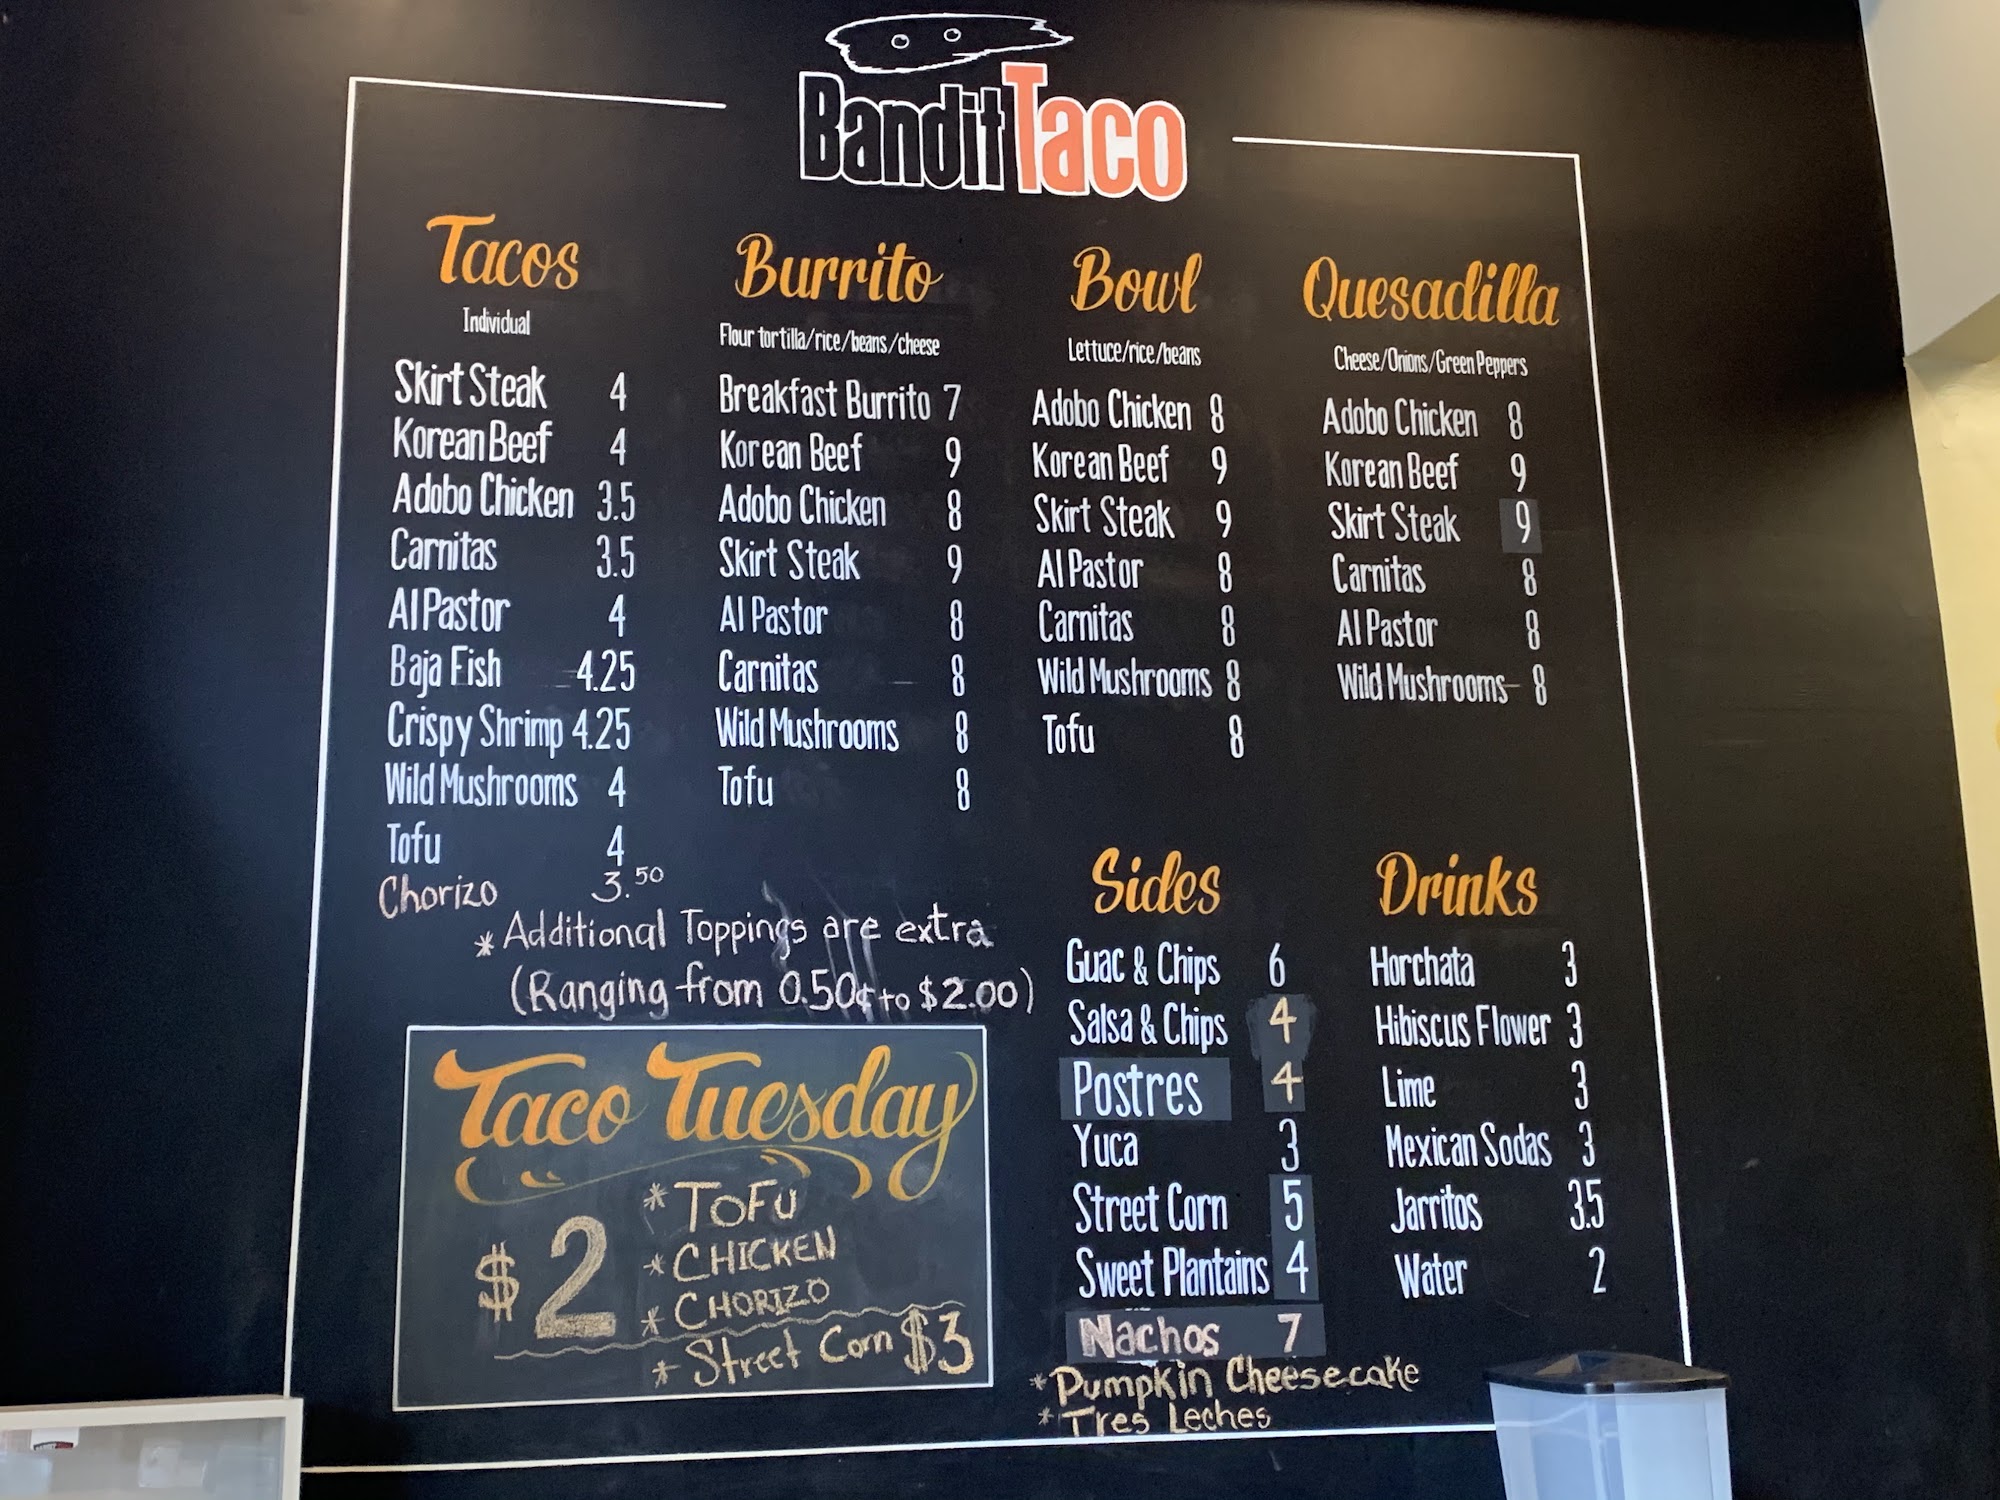 Bandit Taco
Tacos
Individual
Skirt Steak 4
Korean Beef 4
Adobo Chicken 3.5
Carnitas 3.5
Al Pastor 4
Baja Fish 4.25
Crispy Shrimp 4.25
Wild Mushrooms 4
Tofu 4
Chorizo 3.50
* Additional Toppings are extra
(Ranging from 0.50¢ to $2.00)
Burrito
Flour tortilla/rice/beans/cheese
Breakfast Burrito 7
Korean Beef 9
Adobo Chicken 8
Skirt Steak 9
Al Pastor 8
Carnitas 8
Wild Mushrooms 8
Tofu 8
Bowl
Lettuce/rice/beans
Adobo Chicken 8
Korean Beef 9
Skirt Steak 9
Al Pastor 8
Carnitas 8
Wild Mushrooms 8
Tofu 8
Quesadilla
Cheese/Onions/Green Peppers
Adobo Chicken 8
Korean Beef 9
Skirt Steak 9
Carnitas 8
Al Pastor 8
Wild Mushrooms 8
Taco Tuesday
$2
* TOFU
* CHICKEN
* CHORIZO
* Street Corn $3
Sides
Guac & Chips 6
Salsa & Chips 4
Postres 4
Yuca 3
Street Corn 5
Sweet Plantains 4
Nachos 7
* Pumpkin Cheesecake
* Tres Leches
Drinks
Horchata 3
Hibiscus Flower 3
Lime 3
Mexican Sodas 3
Jarritos 3.5
Water 2